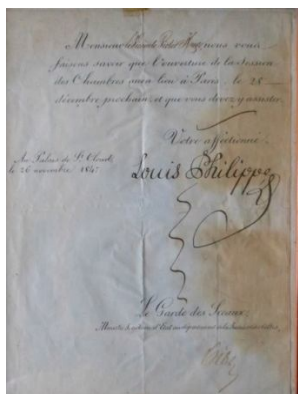 Monsieur le Vicomte Victor Hugo, nous vous
faisons savoir que l'ouverture de la session
des Chambres aura lieu à Paris, le 28
décembre prochain, et que vous devez y assister.
Votre affectionné
Au Palais de St Cloud,
le 26 novembre 1847
Louis Philippe
Le Garde des Sceaux,
Ministre